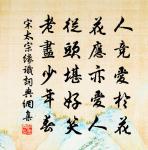 人竟愛於花
花應亦愛人
從頭堪好笑
老盡少年春
宋太宗緣識詞典網集